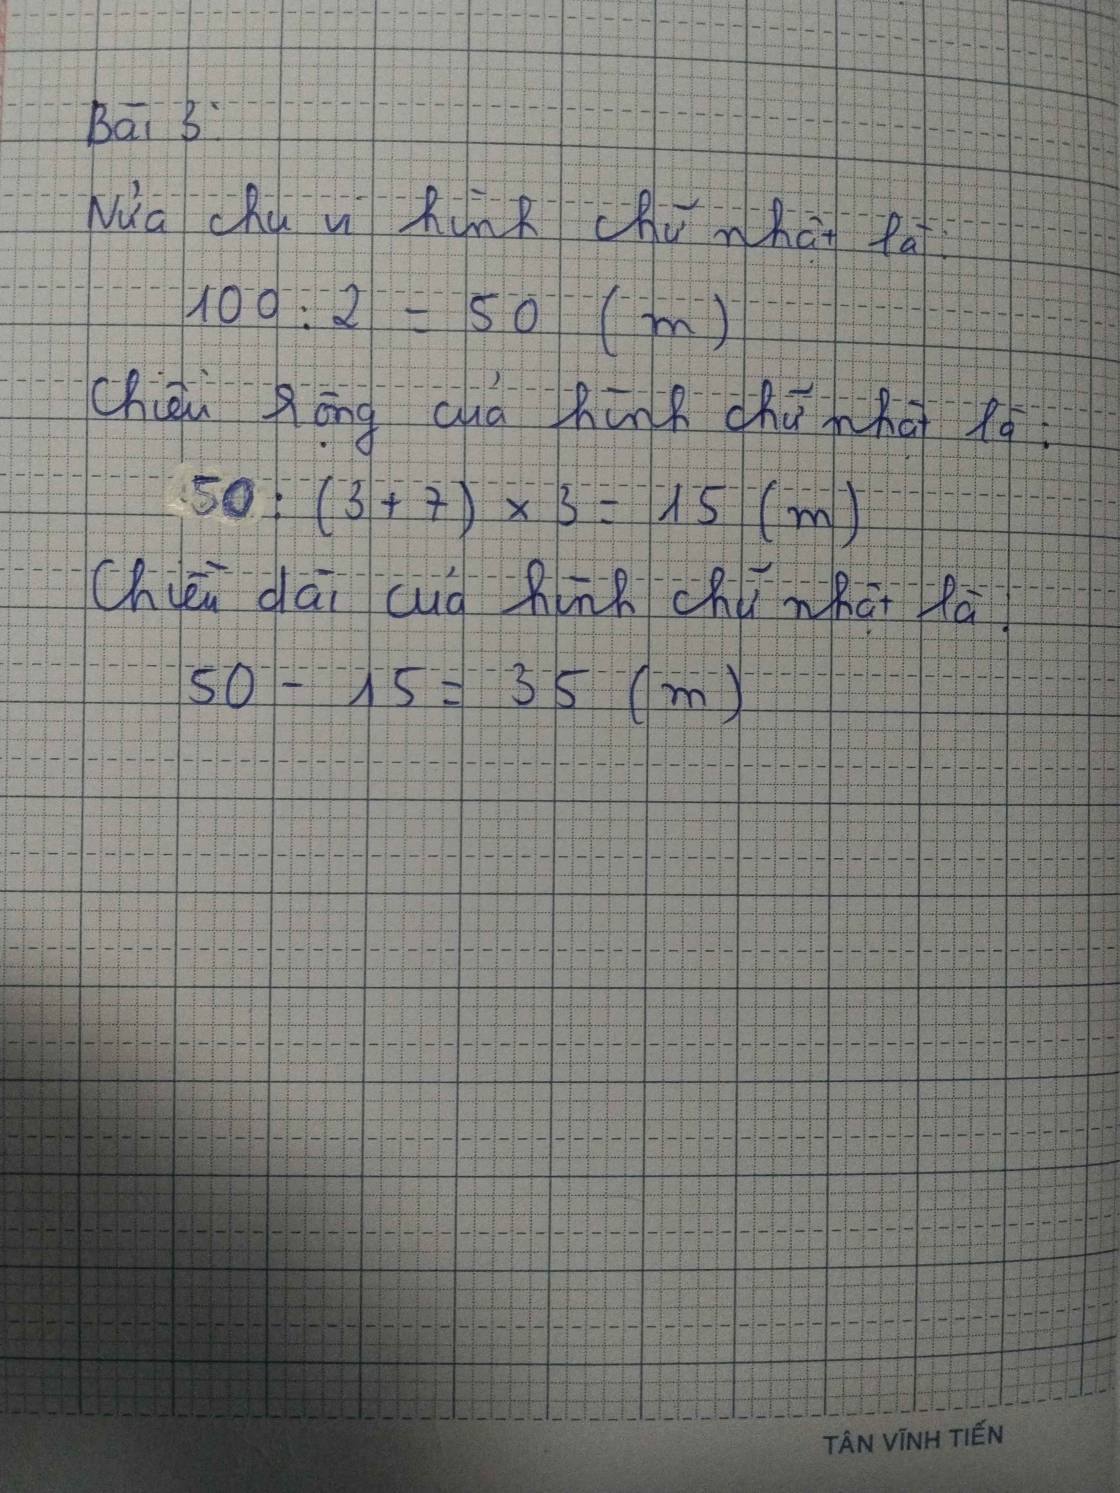 Bài 3:
Nửa chu vi hình chữ nhật là:
100 : 2 = 50 (m)
Chiều rộng của hình chữ nhật là:
50 : (3 + 7) x 3 = 15 (m)
Chiều dài của hình chữ nhật là:
50 - 15 = 35 (m)
TÂN VĨNH TIẾN